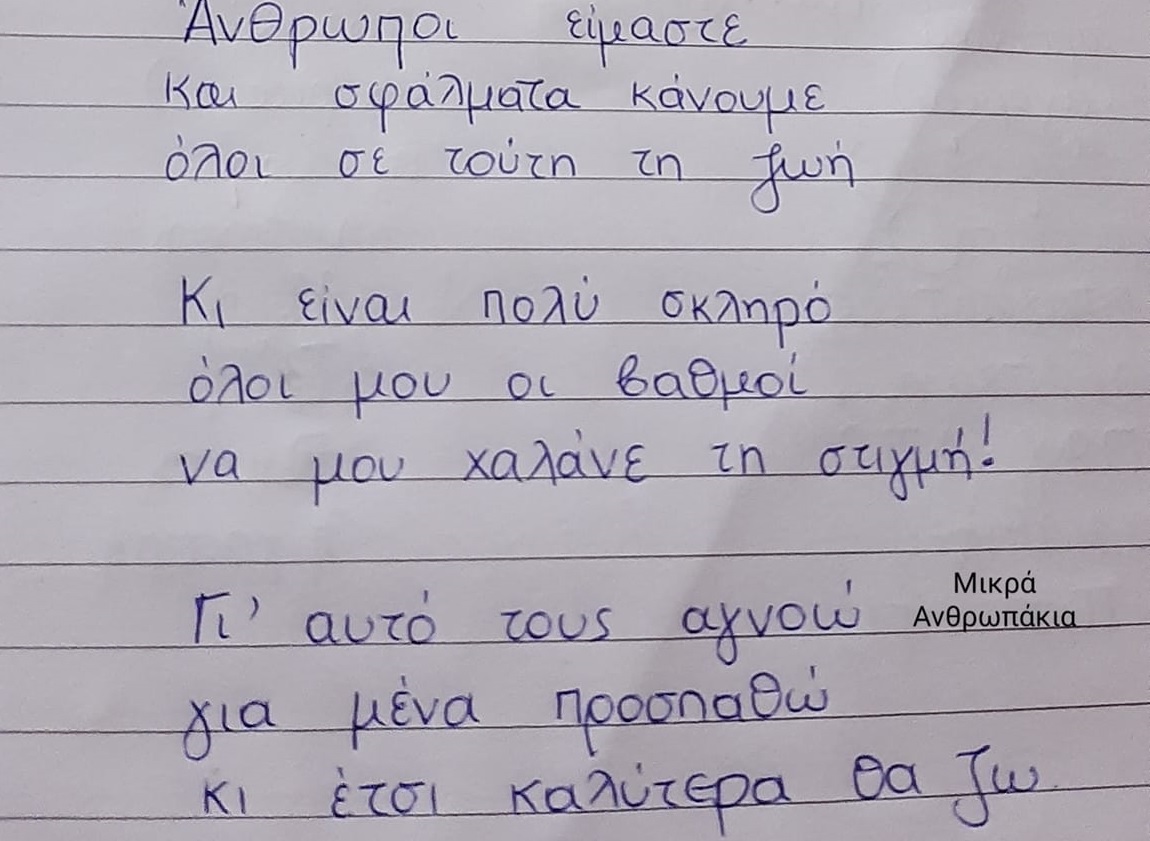 Άνθρωποι είμαστε
και σφάλματα κάνουμε
όλοι σε τούτη τη ζωή
Κι είναι πολύ σκληρό
όλοι μου οι βαθμοί
να μου χαλάνε τη στιγμή!
Γι' αυτό τους αγνοώ
για μένα προσπαθώ
κι έτσι καλύτερα θα ζω
Μικρά
Ανθρωπάκια